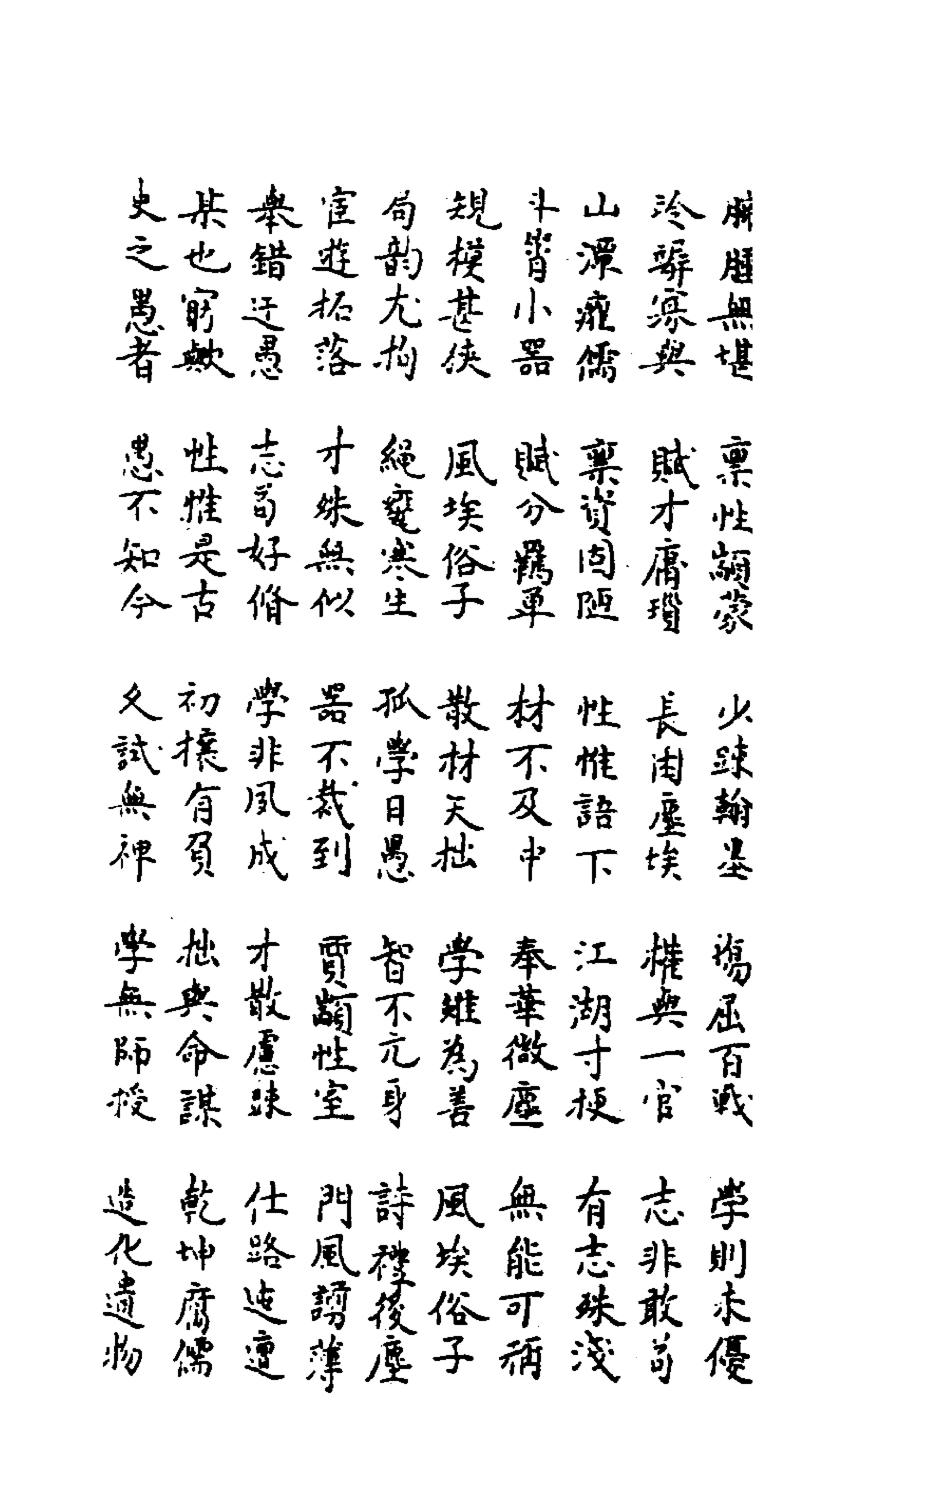 無堪 稟性顓蒙 少疎翰墨 場屈百戦 学則未優
冷僻寡與 賦才腐瑣 長困塵埃 權輿一官 志非敢苟
山澤癯儒 稟資固陋 性惟語下 江湖寸梗 有志殊淺
斗筲小器 賦分羈單 材不及中 奉華微塵 無能可稱
規模甚狹 風埃俗子 散材天拙 學雖為善 風埃俗子
局韵尤拘 繩甕寒生 孤學日愚 智不亢身 詩禮後塵
宦遊拓落 才殊無似 器不裁到 賈顓性室 門風謭薄
舉錯迂愚 志苟好脩 學非夙成 才散慮踈 仕路迍邅
某也窮歟 性惟是古 初攘有負 拙與命謀 乾坤腐儒
史之愚者 愚不知今 文試無神 學無師授 造化遺物